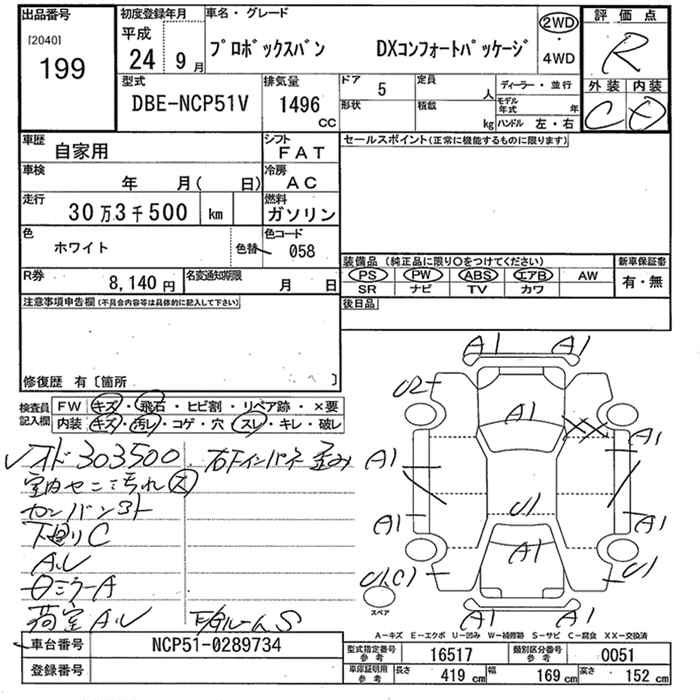 出品番号
[2040]
199
初度登録年月
平成
24年 9月
車名・グレード
プロボックスバン DXコンフォートパッケージ
2WD
・
4WD
評価点
R
外装 内装
C D
型式
DBE-NCP51V
排気量
1496
CC
ドア 5
形状
定員 人
積載 kg
ディーラー・並行
モデル年式 年
ハンドル 左・右
車歴
自家用
シフト
FAT
車検
年 月( 日)
冷房
AC
走行
30万3千500 km
燃料
ガソリン
色
ホワイト
色替
色コード
058
R券
8,140円
名変通知期限
月 日
セールスポイント(正常に機能するものに限ります)
装備品(純正品に限り○をつけてください)
新車保証書
PS PW ABS エアB AW
SR ナビ TV カワ
有・無
後日品
注意事項申告欄(不具合内容等は具体的に記入して下さい)
修復歴 有〔箇所 〕
検査員記入欄
FW キズ・飛石・ヒビ割・リペア跡・×要
内装 キズ・汚レ・コゲ・穴・スレ・キレ・破レ
303500 右Fインパネ歪み
室内セニ汚れ
カンバン
下廻りC
A,U
ロミラーA
荷室A,U S
A1 A1
U2
A1
A1 A1
A1 U1 A1
A1
U1,C1 U1
A1 A1
スペア
A-キズ E-エクボ U-凹み W-補修跡 S-サビ C-腐食 XX-交換済
車台番号
NCP51-0289734
登録番号
型式指定番号
参考
16517
類別区分番号
参考
0051
車庫証明用
参考
長さ 419 cm 幅 169 cm 高さ 152 cm